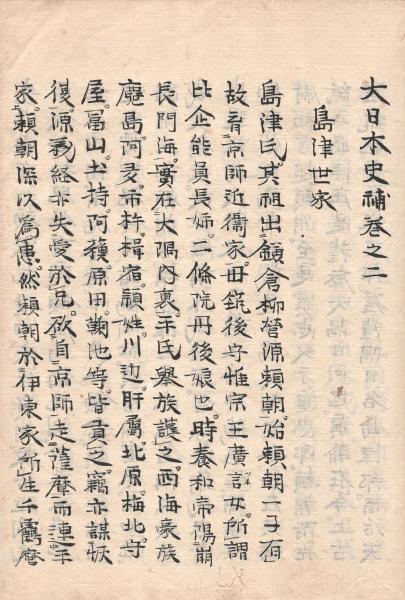 大日本史補卷之二
島津世家
島津氏其祖出鎌倉柳營源頼朝始頼朝一子有
故育京師近衞家母筑後守惟宗王廣言女所謂
比企能員長姉二條院丹後娘也時養和帝陽崩
長門海實在大隅内裏平氏擧族護之西海豪族
鹿島阿多市杵楫宿頴姓川辺肝属北原梅北守
屋冨山土持阿蘓原田菊池等皆貢之竊亦謀恢
復源義經亦失愛於兄欲自京師走薩摩而連平
家頼朝深以爲患然頼朝於伊東家所生千靏麿